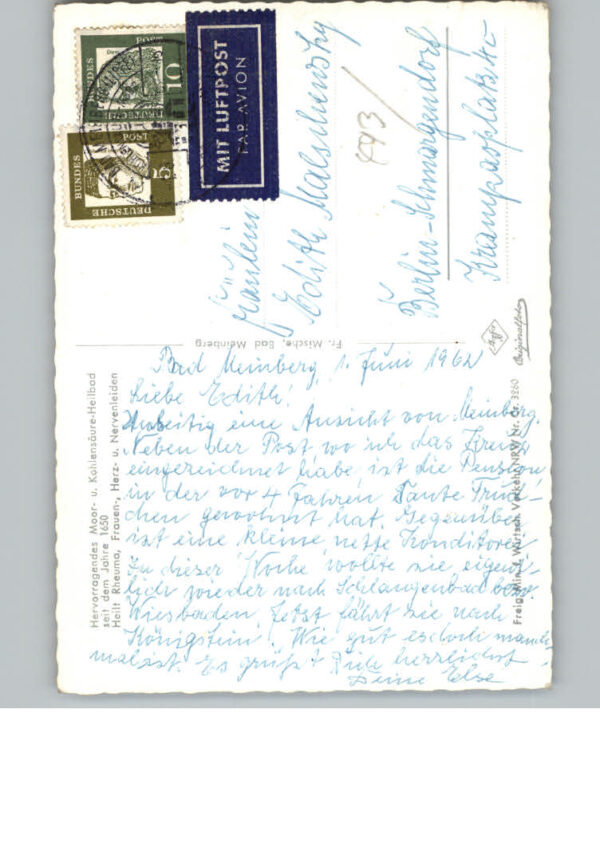 DEUTSCHE
BUNDES
POST
10
DEUTSCHE
BUNDES
POST
5
MIT LUFTPOST
PAR AVION
Fräulein
Edith
Berlin-Schmargendorf
Hervorragendes Moor- u. Kohlensäure-Heilbad
seit dem Jahre 1650
Heilt Rheuma, Frauen-, Herz- u. Nervenleiden
Fr. Mische, Bad Meinberg
Originalfoto
Freig. Min. f. Wirtsch. Verkehr NRW Nr. Gr. 3260
Bad Meinberg, 1. Juni 1962
Liebe Edith!
Umseitig eine Ansicht von Meinberg.
Neben der Post wo ich das Kreuz
eingezeichnet habe ist die Pension
in der vor 4 Jahren Tante Trud-
chen gewohnt hat. Gegenüber
ist eine kleine nette Konditorei
In dieser Woche wollte sie eigent-
lich wieder nach Schlangenbad bei
Wiesbaden. Jetzt fährt sie nach
Königstein. Wie gut es doch manch
mal ist. Es grüßt Dich herzlichst
Deine Else